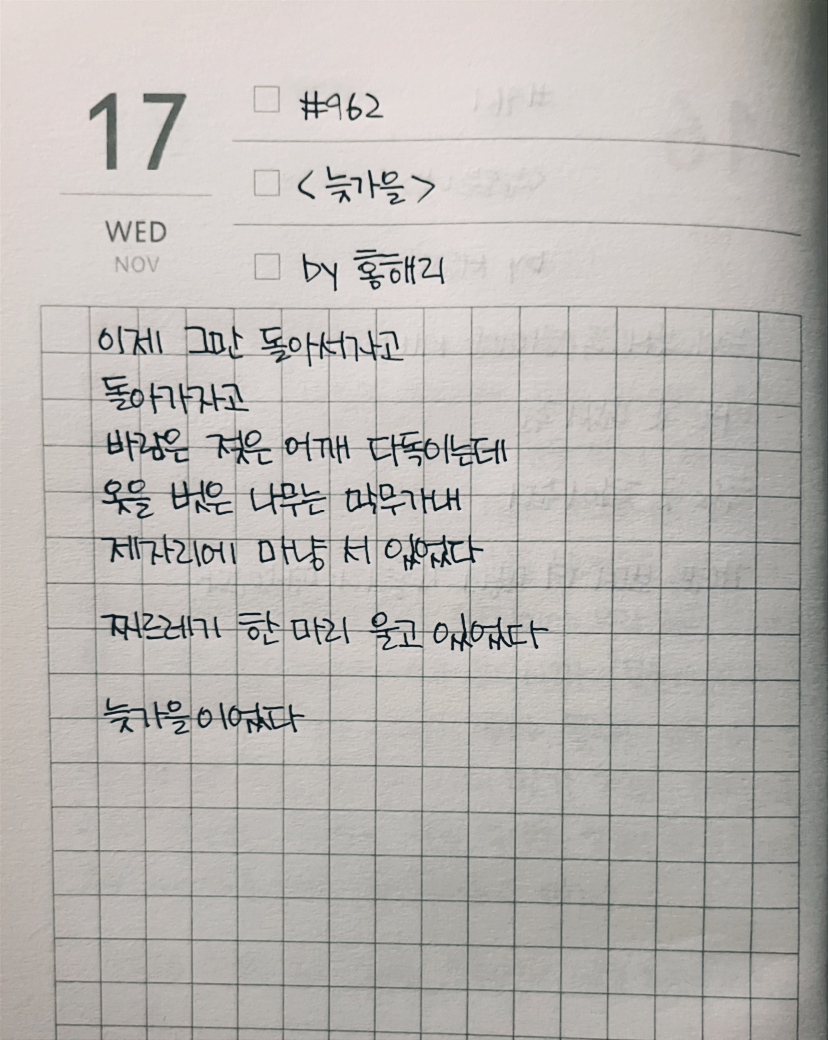 17
WED
NOV
#962
<늦가을>
by 홍해리
이제 그만 돌아서자고
돌아가자고
바람은 젖은 어깨 다독이는데
옷을 벗은 나무는 막무가내
제자리에 마냥 서 있었다
찌르레기 한 마리 울고 있었다
늦가을이었다